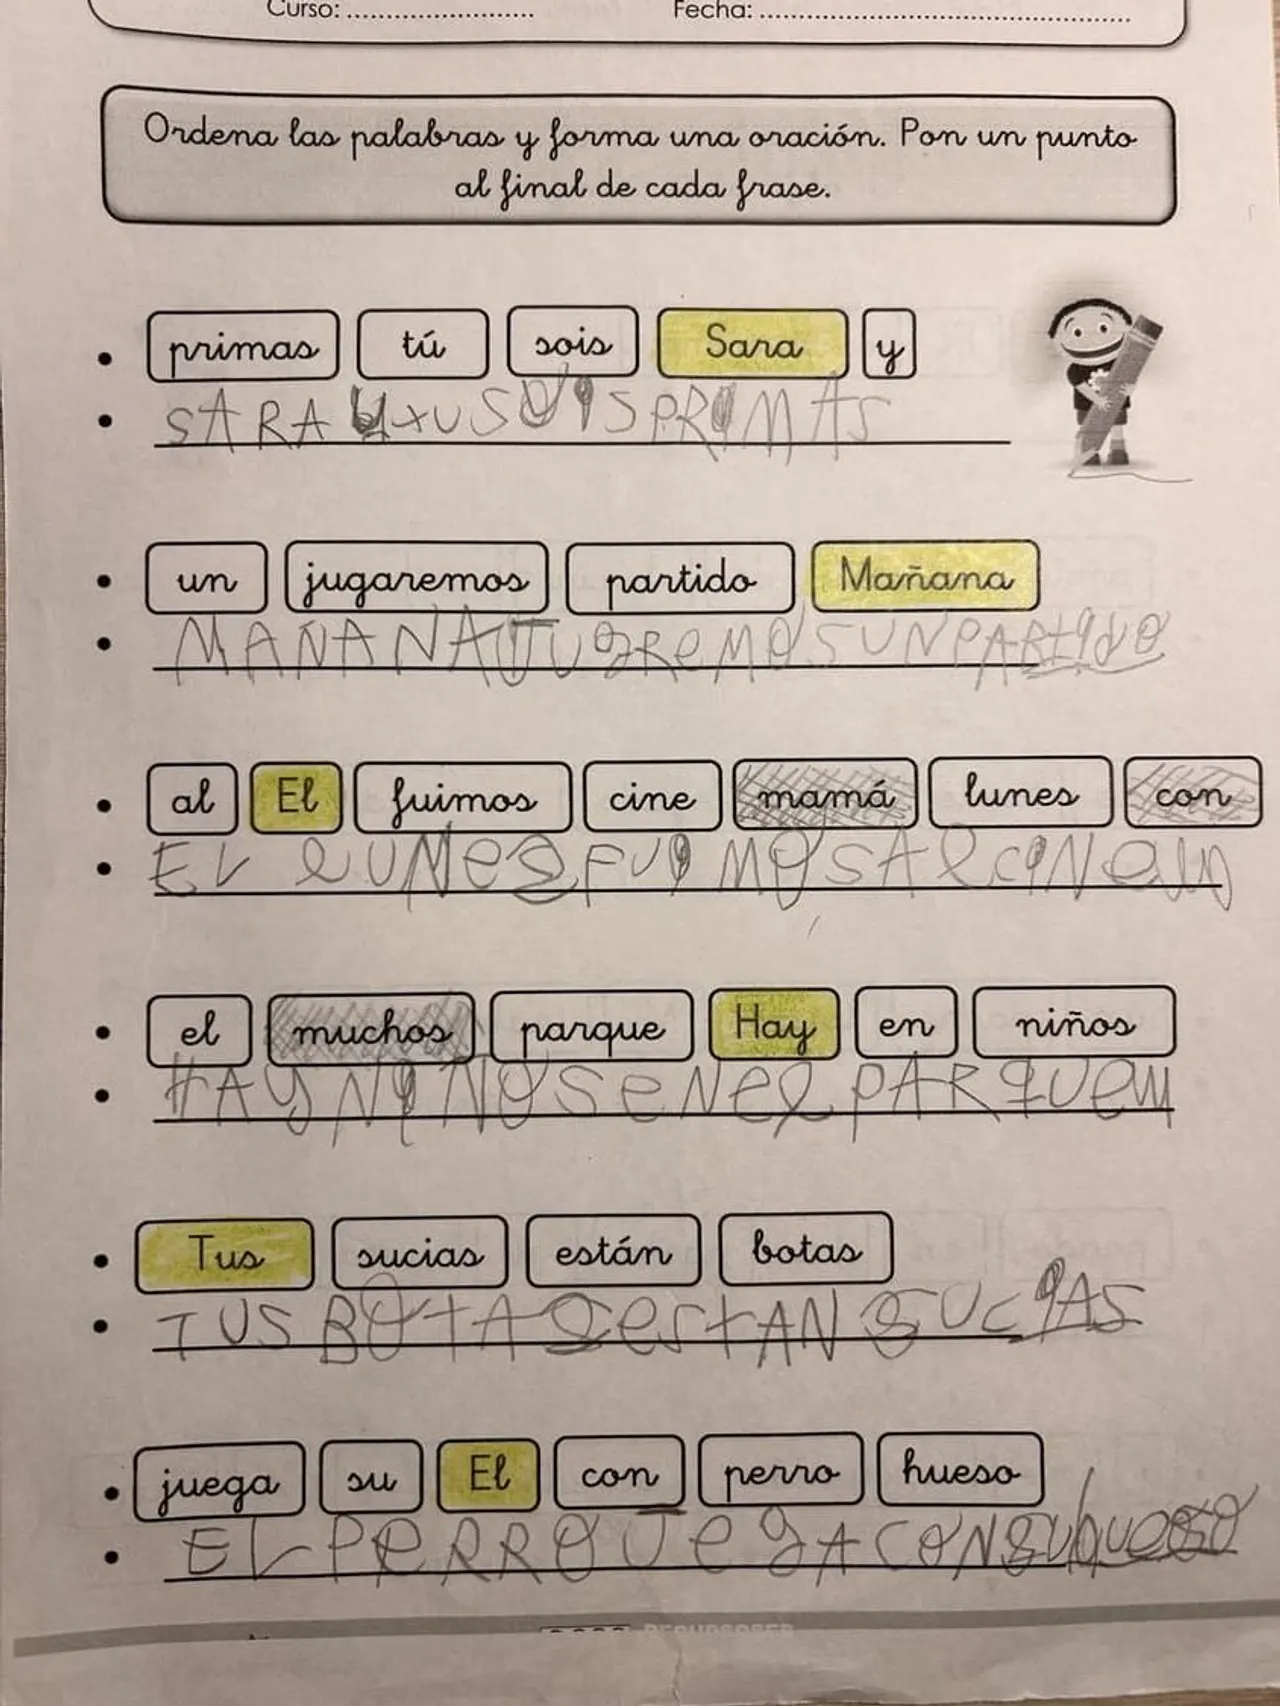 Curso: ........................
Fecha: ................................................
Ordena las palabras y forma una oración. Pon un punto
al final de cada frase.
primas tú sois Sara y
SARA y XU SOIS PRIMAS
un jugaremos partido Mañana
MAÑANA JUGREMOS UN PARTIdO
al El fuimos cine mamá lunes con
EL lUNeS FUIMOS Al CINe
el muchos parque Hay en niños
HAY NIÑOS eN el PARqUe
Tus sucias están botas
TUS BOTAS esTAN SUCIAS
juega su El con perro hueso
EL PeRRO JUegA CON SU hueso